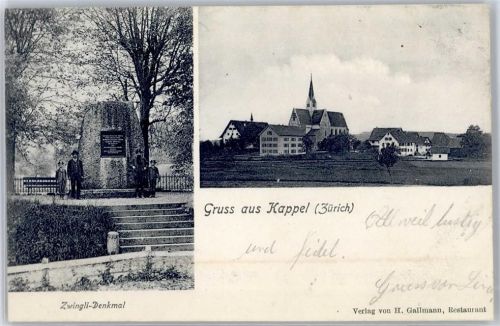 Gruss aus Kappel (Zürich)
weil lustig
und fidel.
Gruss von
Zwingli-Denkmal
Verlag von H. Gallmann, Restaurant